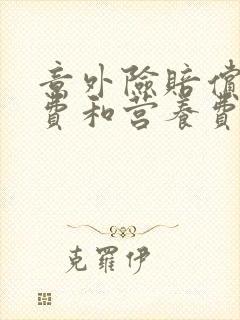 意外險賠償
費和营養費
克羅伊